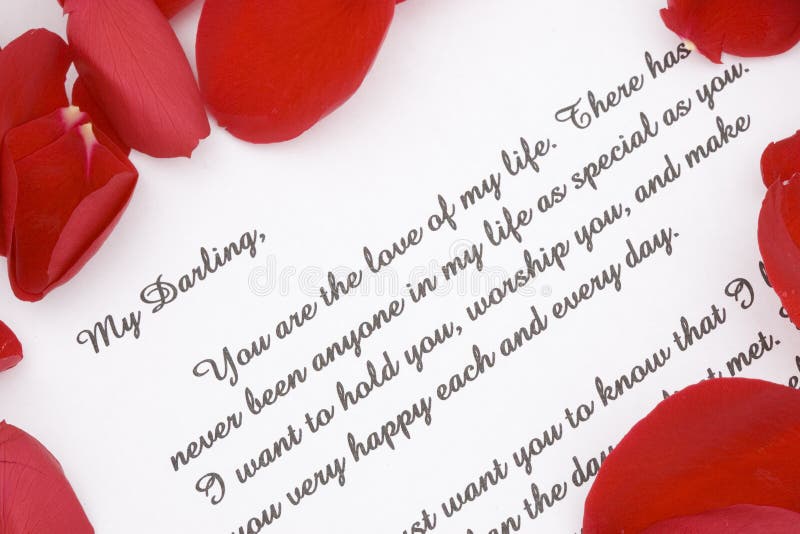 My Darling,
You are the love of my life. There has
never been anyone in my life as special as you.
I want to hold you, worship you, and make
you very happy each and every day.
want you to know that I
the day met.